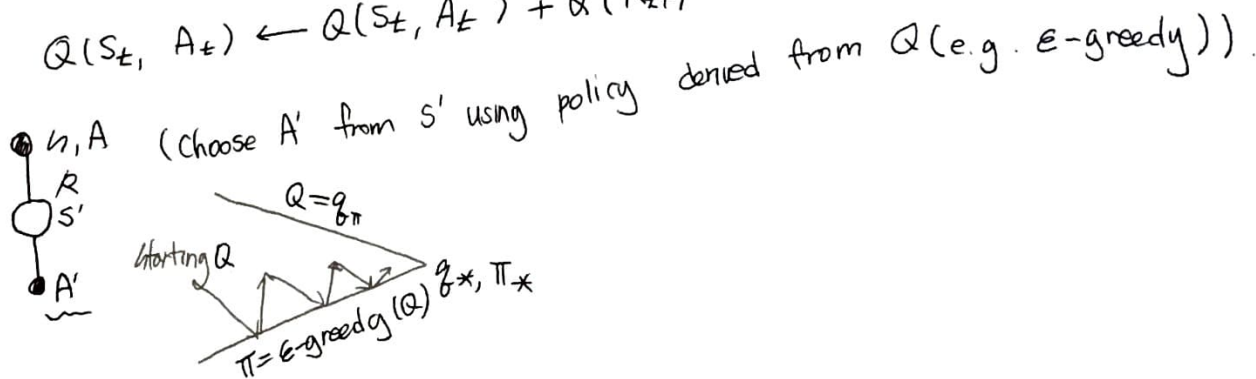 Q(St, At) ← Q(St, At) + α(
S, A (Choose A' from S' using policy derived from Q(e.g. ε-greedy)).
R
S'
A'
Q=qπ
Starting Q
q*, π*
π=ε-greedy(Q)